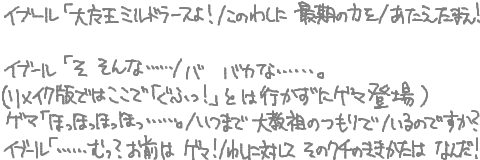 イブール「大魔王ミルドラースよ！/このわしに 最期の力を/あたえたまえ！
イブール「そ そんな……/バ バカな……。
(リメイク版ではここで「ぐふっ！」とは行かずにゲマ登場)
ゲマ「ほっほっほっほっ……。/いつまで 大教祖のつもりで/いるのですか？
イブール「……むっ？お前は ゲマ！/わしに対して そのクチのききかたは なんだ！